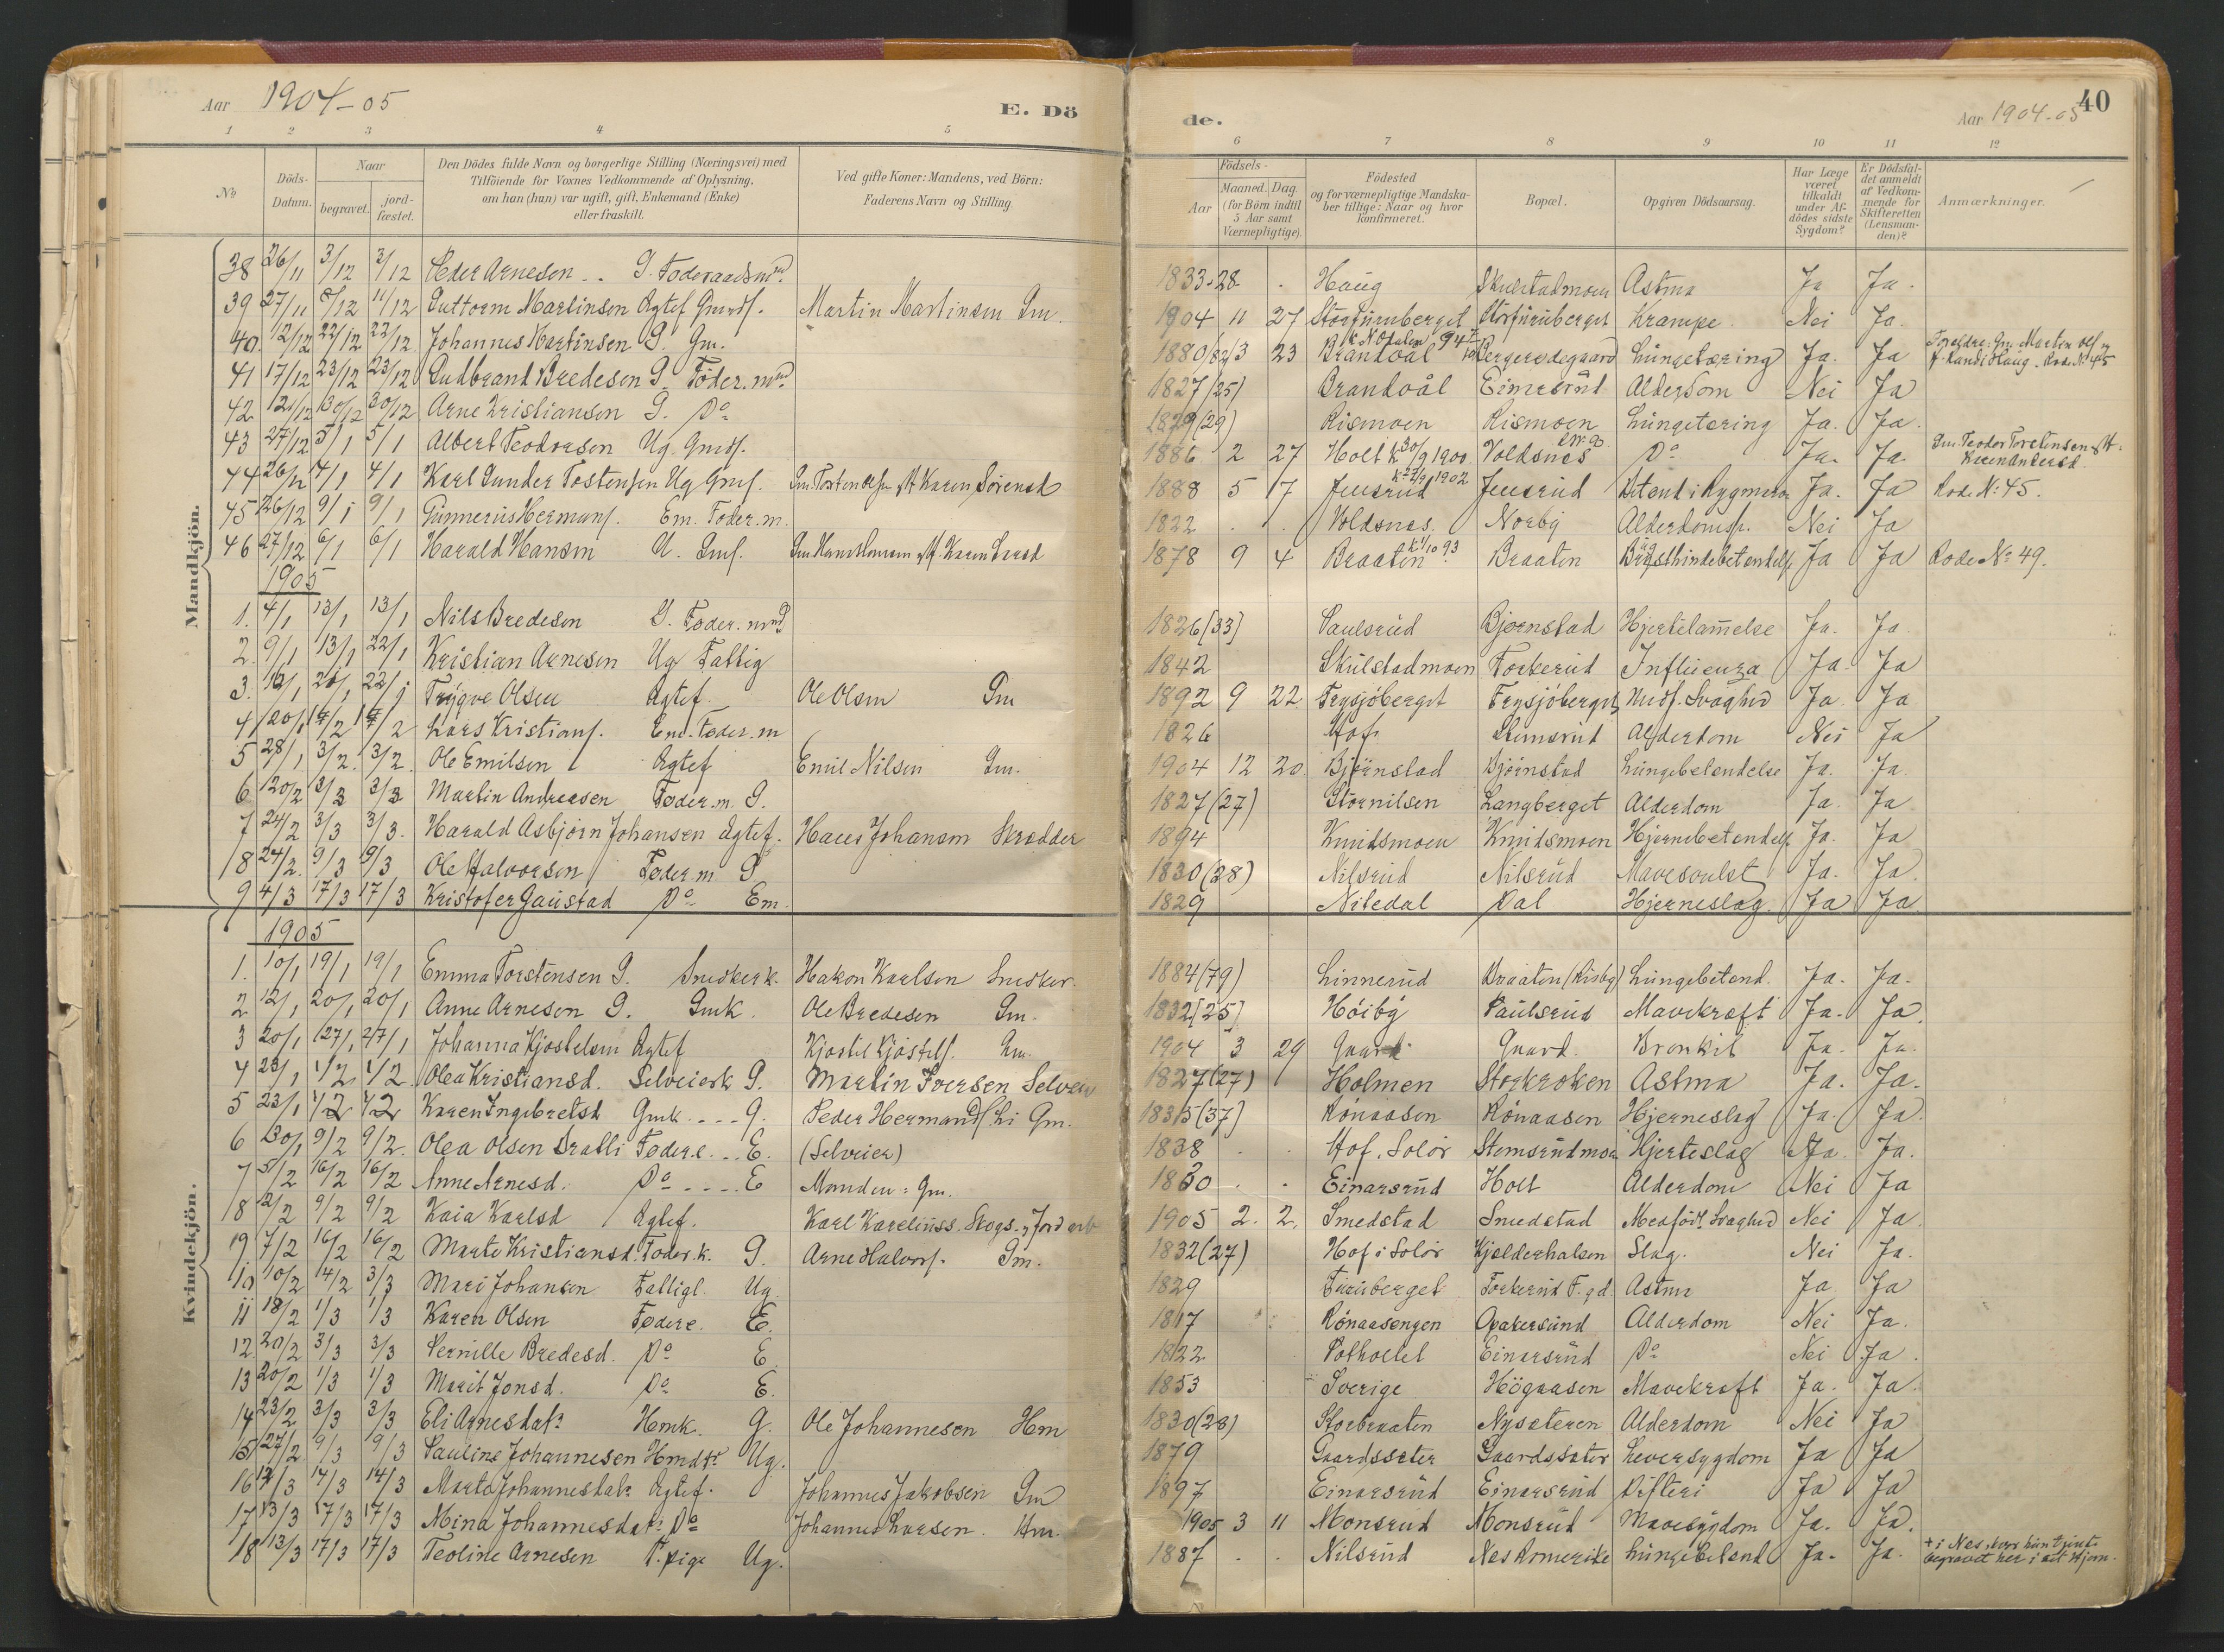 Aar 1904-05
E. Dö
de.
Aar 1904-05
40
1 2 3 4 5 6 7 8 9 10 11 12
No
Döds-Datum.
Naar
begravet.
jord-fæstet.
Den Dödes fulde Navn og borgerlige Stilling (Næringsvei) med
Tilföiende for Voxnes Vedkommende af Oplysning,
om han (hun) var ugift, gift, Enkemand (Enke)
eller fraskilt.
Ved gifte Koner: Mandens, ved Börn:
Faderens Navn og Stilling.
Födsels-
Aar
Maaned. Dag.
(for Börn indtil
5 Aar samt
Værnepligtige).
Födested
og for værnepligtige Mandska-
ber tillige: Naar og hvor
konfirmeret.
Bopæl.
Opgiven Dödsaarsag.
Har Læge
været
tilkaldt
under Af-
dödes sidste
Sygdom?
Er Dödsfal-
det anmeldt
af Vedkom-
mende for
Skifteretten
(Lensman-
den)?
Anmærkninger.
Mandkjön.
38 26/11 3/12 3/12 Peder Arnesen G. Föderaadsmd. 1833-28 Haug Skulstadmoen Astma Ja Ja
39 27/11 11/12 Guttorm Martinsen Ægtef Gmds. Martin Martinsen Gm. 1904 11 27 Storfuruberget Storfuruberget Krampe Nei Ja
40. 12/12 22/12 22/12 Johannes Martinsen G. Gm. 1880/82 3 23 Brandvål Bergerødegaard Lungetæring Ja. Ja Forældre: Gm. Martin
Randi Haug. Rode No 45
41 17/12 23/12 23/12 Gudbrand Bredesen G. Föder.md. 1827/25) Brandvål Einarsrud Alderdom Nei Ja
42 30/12 30/12 Arne Kristiansen G. Do 1829(29) Rismoen Rismoen Lungetæring Ja. Ja.
43 27/12 5/1 5/1 Albert Teodorsen Ug. Gmds. 1886 2 27 Holt k 30/9 1900 Voldsnes Do Ja. Ja. Gm. Teodor Torstensen
Karen Andersd.
44 26/12 4/1 4/1 Karl Gunder Tostensen Ug Gms. Gm. Tosten Olsen Karen Sörensd 1888 5 17 Jeusrud k 1902 Jeusrud Ja. Ja Rode No 45.
45 26/12 9/1 9/1 Gunnerus Hermans. Em. Föder.m. 1822 Voldsnes. Norby Nei Ja
46 27/12 6/1 6/1 Harald Hansen U. Gms. Karen Larsd 1878 9 4 Braaten k 1/10 93 Braaten Brysthindebetændelse Ja Ja Rode No 49.
1905
1. 4/1 13/1 13/1 Nils Bredesen G. Föder.md. 1826[33] Paulsrud Bjørnstad Hjertelammelse Ja. Ja
2. 9/1 13/1 22/1 Kristian Arnesen Ug Fattig 1842 Skulstadmoen Torkerud Influenza Ja. Ja
3. 20/1 22/1 Trygve Olsen Ægtef. Ole Olsen Gm 1892 9 22 Frysjöberget Frysjöberget Medf. Svaghed Ja Ja
4 20/1 Lars Kristians. Em. Föder.m 1826 Hof Stemsrud Alderdom Nei Ja
5 28/1 3/2. 3/2. Ole Emilsen Ægtef Emil Nilsen Gm. 1904 12 20 Björnstad Björnstad Lungebetændelse Ja. Ja.
6 20/2 3/3 3/3 Martin Andreasen Föder.m. G. 1827(27) Stornilsen Langberget Alderdom Ja. Ja
7 24/2 3/3 3/3. Harald Asbjørn Johansen Ægtef. Johansen Skrædder 1894 Knudsmoen Knudsmoen Hjernebetændelse Ja. Ja
8 24/2. 9/3 9/3 Ole Halvorsen Föder.m G 1830(28) Nilsrud Nilsrud Mavesvulst Ja. Ja.
9 4/3 17/3 17/3 Kristofer Gaustad Do Em. 1829 Nitedal Dal Hjerneslag. Ja Ja
Kvindekjön.
1905
1. 10/1 19/1 19/1 Emma Torstensen G. Snedkerk. Hakon Karlsen Snedker. 1884(79) Linnerud Braaten (Risbg) Lungebetænd. Ja. Ja.
2 12/1 20/1 20/1 Anne Arnesen G. Gmk. Ole Bredesen Gm. 1832[25] Höiby Paulsrud Mavekræft Ja. Ja.
3 20/1 27/1 27/1 Johanna Kjøstelsen Ægtef Kjøstel Kjøstels. Gm. 1904 3 29 Gaard Gaard. Bronkit Ja. Ja.
4 23/1 1/2 1/2 Olea Kristiansd. Selveierk G. Martin Iversen Selveier 1827(27) Holmen Storkroken Astma Ja. Ja.
5 23/1 1/2 1/2 Karen Ingebretsd Gmk. G. Peder Hermands. Gm. 1835[37] Rönaasen Rönaasen Hjerneslag Ja. Ja.
6 30/1 9/2 9/2. Olea Olsen Föder.e. E. (Selveier) 1838 Hof. Solör Stemsrudmoen Hjerteslag Ja. Ja.
7 5/2 16/2 16/2 Anne Arnesd. Do E Manden: Gm. 1830 Einarsrud Holt Alderdom Nei Ja
8 2/2 9/2 9/2 Kaia Karlsd Ægtef. Karl Kareliuss. Skogs- og Jordarb 1905 2. 2. Smedstad Smedstad Medfödt Svaghed Nei Ja.
9 7/2 16/2 16/2 Marte Kristiansd. Föder.k. G. Arne Halvors. Gm. 1832(27) Hof i Solör Kjælderhalsen Slag. Nei Ja.
10 10/2 14/2 3/3 Mari Johansen Fattigl. Ug. 1829 Furuberget Torkerud F.gd. Astma Ja Ja
11 18/2 1/3 1/3 Karen Olsen Födere. E. 1817 Rönaasengen Opakersund Alderdom Nei Ja.
12 20/2 3/3 3/3 Pernille Bredesd. Do E. 1822 Einarsrud Do Nei Ja.
13 20/2 1/3 1/3 Marit Jonsd. Do E. 1853 Sverige Högaasen Mavekræft Ja. Ja
14 23/2 3/3 3/3 Eli Arnesdatr Hmk. G. Ole Johannesen Hm 1830(28) Storbraaten Nysæteren Alderdom Nei Ja
15 27/2 9/3 9/3 Pauline Johannesen Hmdtr Ug. 1879 Gaardssæter Gaardssæter Leversygdom Ja Ja
16 14/3 14/3 Marta Johannesdatr Ægtef. Johannes Jakobsen Gm 1897 Einarsrud Einarsrud Difteri Ja Ja
17 13/3 17/3 17/3 Mina Johannesdatr Do Johannes Larsen. Hm. 1905 3 11 Monsrud Monsrud Mavesygdom Ja. Ja.
18 13/3 17/3 17/3 Teoline Arnesen T.pige Ug. 1887 Nilsrud Nes Romerike Lungebetænd Ja. Ja. + i Nes, hvor hun tjente
begravet her i sit Hjem.